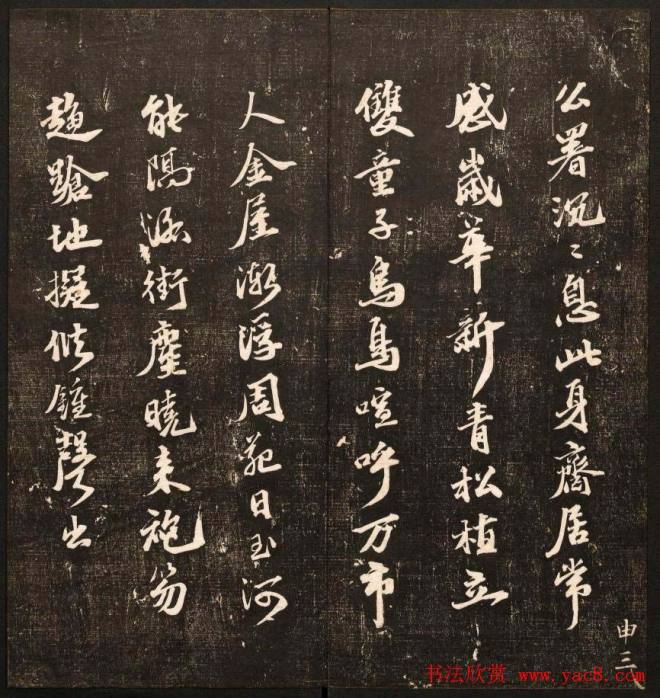 公署沉〻息此身齋居常
感歲華新青松植立
雙童子烏鳥喧呼万市
人金屋漸浮周苑日玉河
能隔滿街塵曉来袍笏
趨蹌地擬候鍾聲出
申三
书法欣赏 www.yac8.com